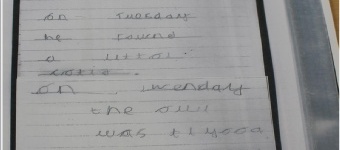 on Tuesday
he found
a littol
on wenday
the owl
was